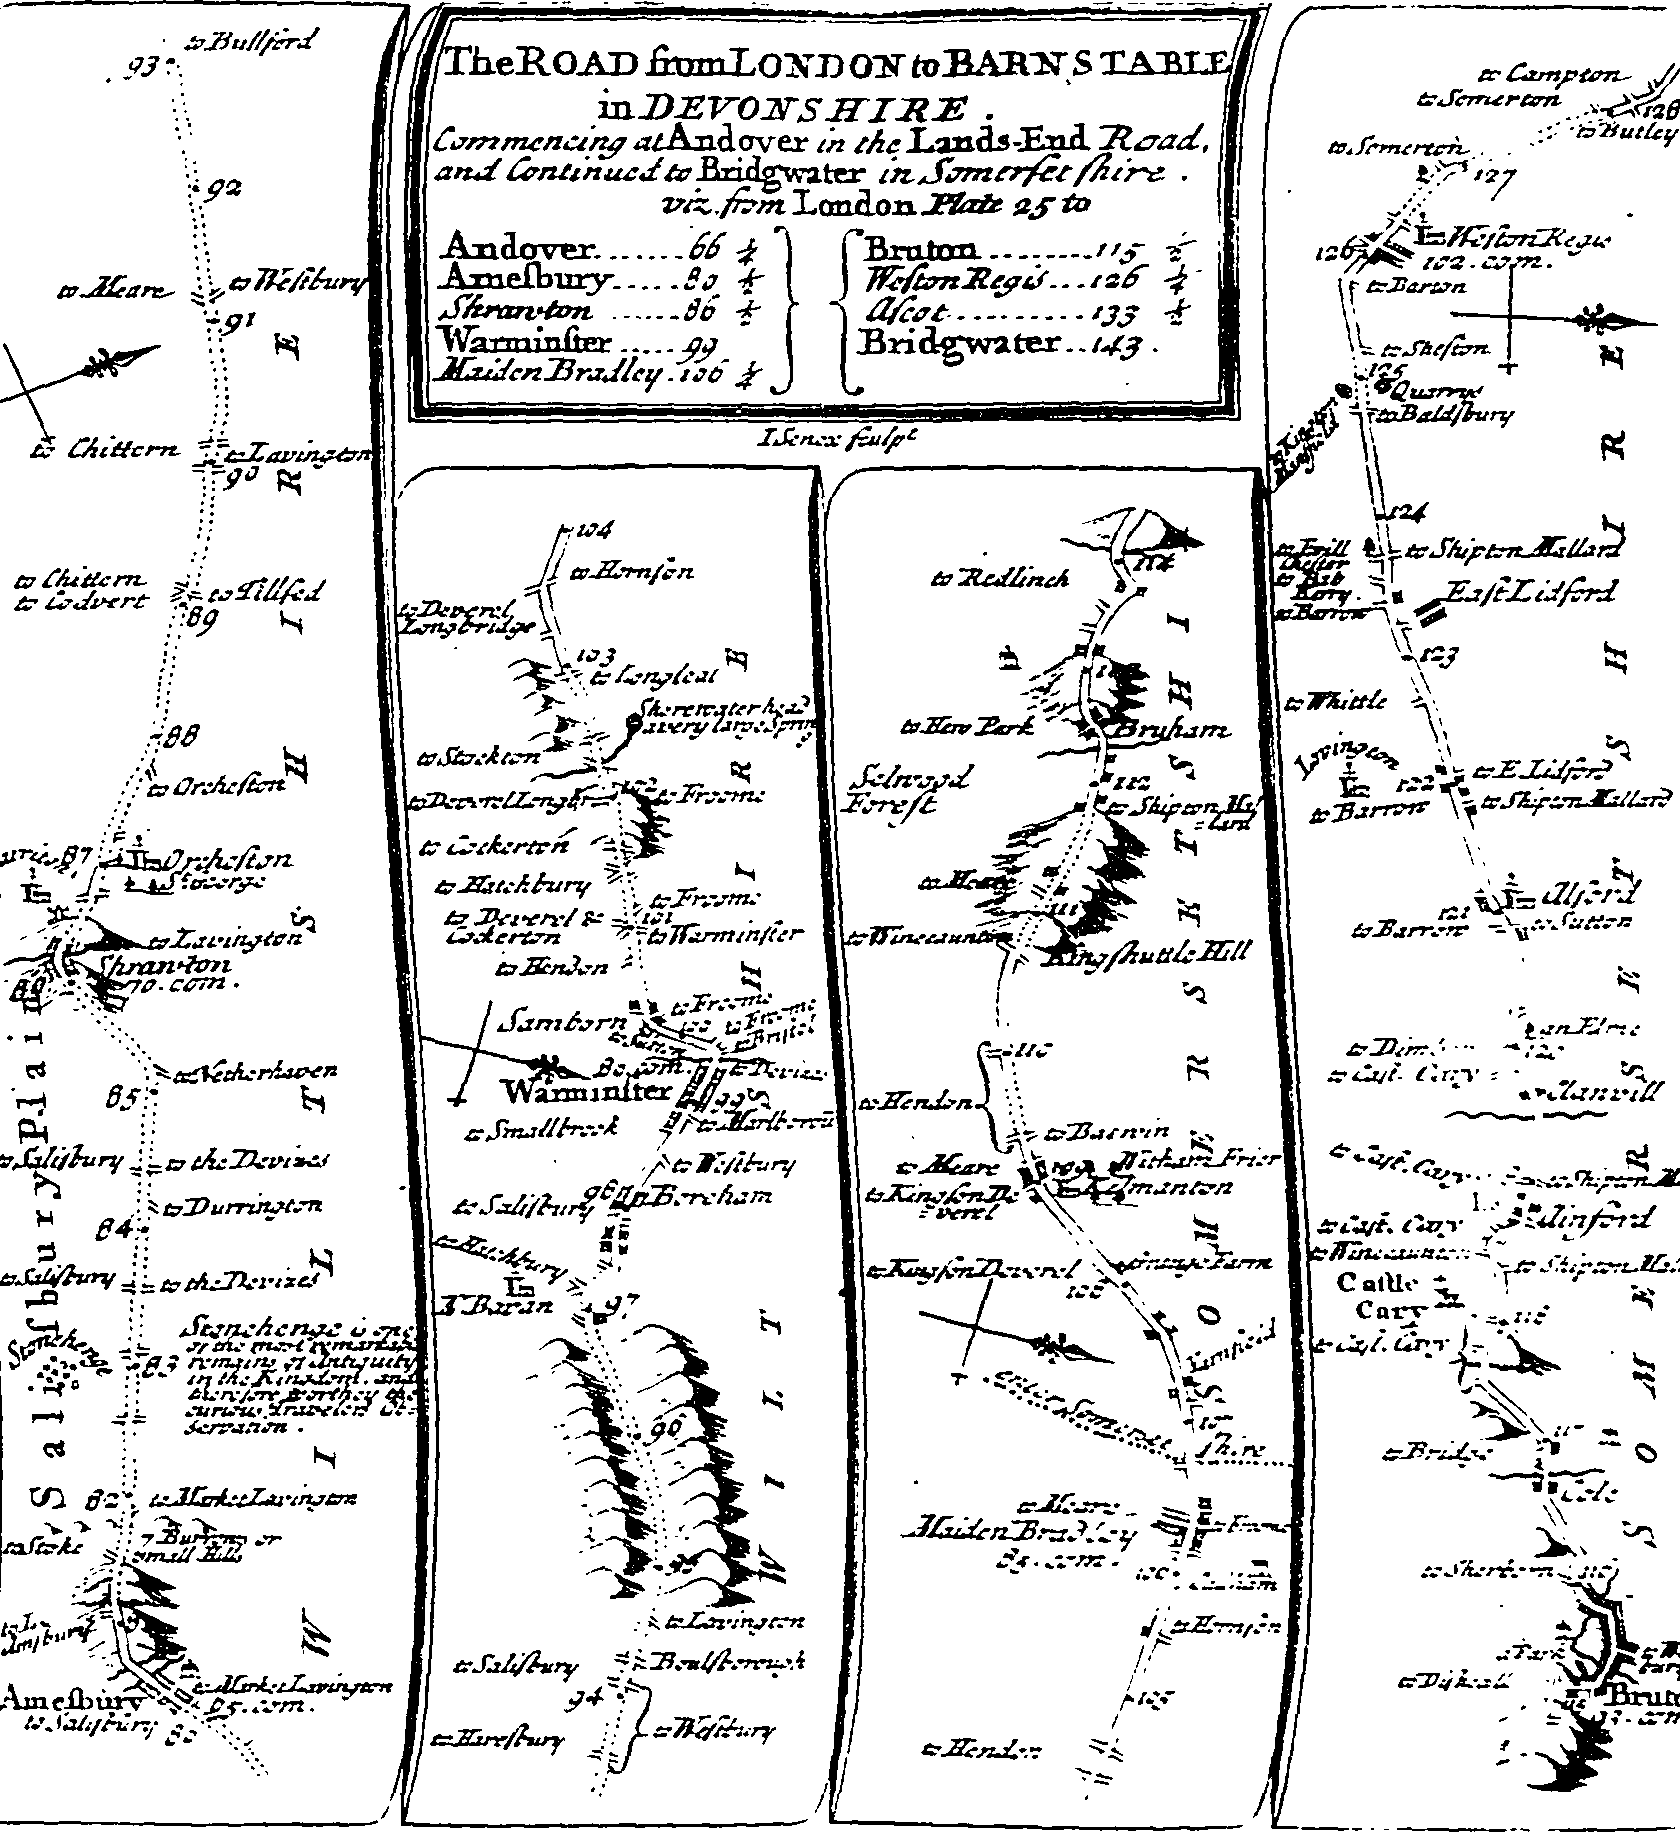 The ROAD from LONDON to BARNSTABLE
in DEVONSHIRE .
Commencing at Andover in the Lands-End Road,
and Continued to Bridgwater in Somerſet ſhire .
viz. from London Plate 25 to
Andover.......66 ¼
Ameſbury.....80 ½
Shrawton ......86 ½
Warminſter .....99
Maiden Bradley.106 ¼
Bruton .........115 ½
Weſton Regis...126 ¼
Aſcot..........133 ½
Bridgwater..143 .
I Senex ſculpᵗ
to Bullford
93
92
to Meare
to Weſtbury
91
to Chittern
to Lavington
90
to Chittern
to Codvert
to Tillſed
89
88
to Orcheſton
87
Orcheſton
St George
to Lavington
Shrawton
70 . com .
86
to Netherhaven
85
to Saliſbury
to the Devizes
to Durrington
84
to Saliſbury
to the Devizes
Stonehenge
83
Stonehenge is one
of the moſt remarkable
remains of Antiquity
in the Kingdom, and
therefore worthy the
curious travelers Ob
servation .
82
to Market Lavington
to Stoke
7 Burrows or
ſmall Hills
to Market Lavington
Ameſbury
95 . com .
to Saliſbury
80
Saliſbury Plain
WILTSHIRE
104
to Hornſon
to Deverel
Longbridge
103
to Longleat
Sherewater head
a very large Spring
to Stockton
102
to Deverel Longbr
to Froome
to Cockerton
to Hatchbury
to Froome
to Deverel &
Cockerton
101
to Warminſter
to Hendon
Samborn
to Froome
100
to Froome
to Briſtol
80 com.
to Devizes
Warminſter
99
to Smallbrook
to Marlborou
to Weſtbury
to Saliſbury
98
Boreham
to Hatchbury
N. Bavan
97
96
95
to Lavington
to Saliſbury
Boulſborough
94
to Hareſbury
to Weſtbury
WILTSHIRE
114
to Redlinch
to Hero Park
Bruham
Selwood
Foreſt
112
to Shipton Mal
lard
to Meare
111
to Winecaunton
Kingſhuttle Hill
110
to Hendon
to Barwin
to Meare
109
Witham Frier
to Kingſon De
verel
Kilmanton
to Kingſon Deverel
108
enter Somerſet
ſhire
to Meare
Maiden Bradley
85 . com .
106
to Hornſon
105
to Hendon
SOMERSETSHIRE
to Campton
to Somerton
128
to Butley
to Somerton
127
126
Weſton Regis
102 . com .
to Barton
to Sheſton
125
Quarrys
to Baldſbury
124
to Shipton Mallard
to Barrow
Eaſt Lidford
123
to Whittle
Lovington
to E Lidford
122
to Barrow
to Shipton Mallard
Alford
121
to Barrow
to Sutton
an Elme
120
to Caſt. Cary
Clanvill
to Caſt. Cary
to Shipton M
to Caſt. Cary
to Winecaunton
to Shipton Mal
Caſtle
Cary
118
to Caſt. Cary
117
to Bridge
Cole
to Sherborn
116
a Park
Brut
SOMERSETSHIRE